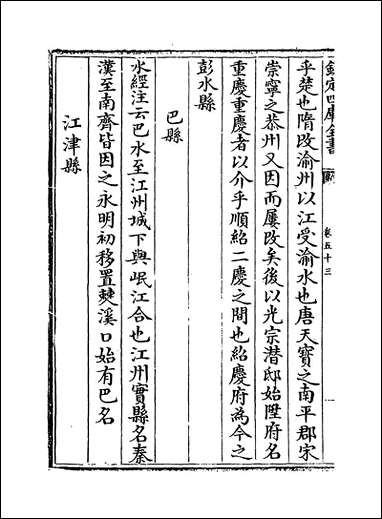 欽定四庫全書
卷五十三
乎楚也隋改渝州以江受渝水也唐天寳之南平郡宋
崇寧之恭州又因而屢改矣後以光宗潛邸始陞府名
重慶重慶者以介乎順紹二慶之間也紹慶府為今之
彭水縣
巴縣
水經注云巴水至江州城下與岷江合也江州實縣名秦
漢至南齊皆因之永明初移置僰溪口始有巴名
江津縣